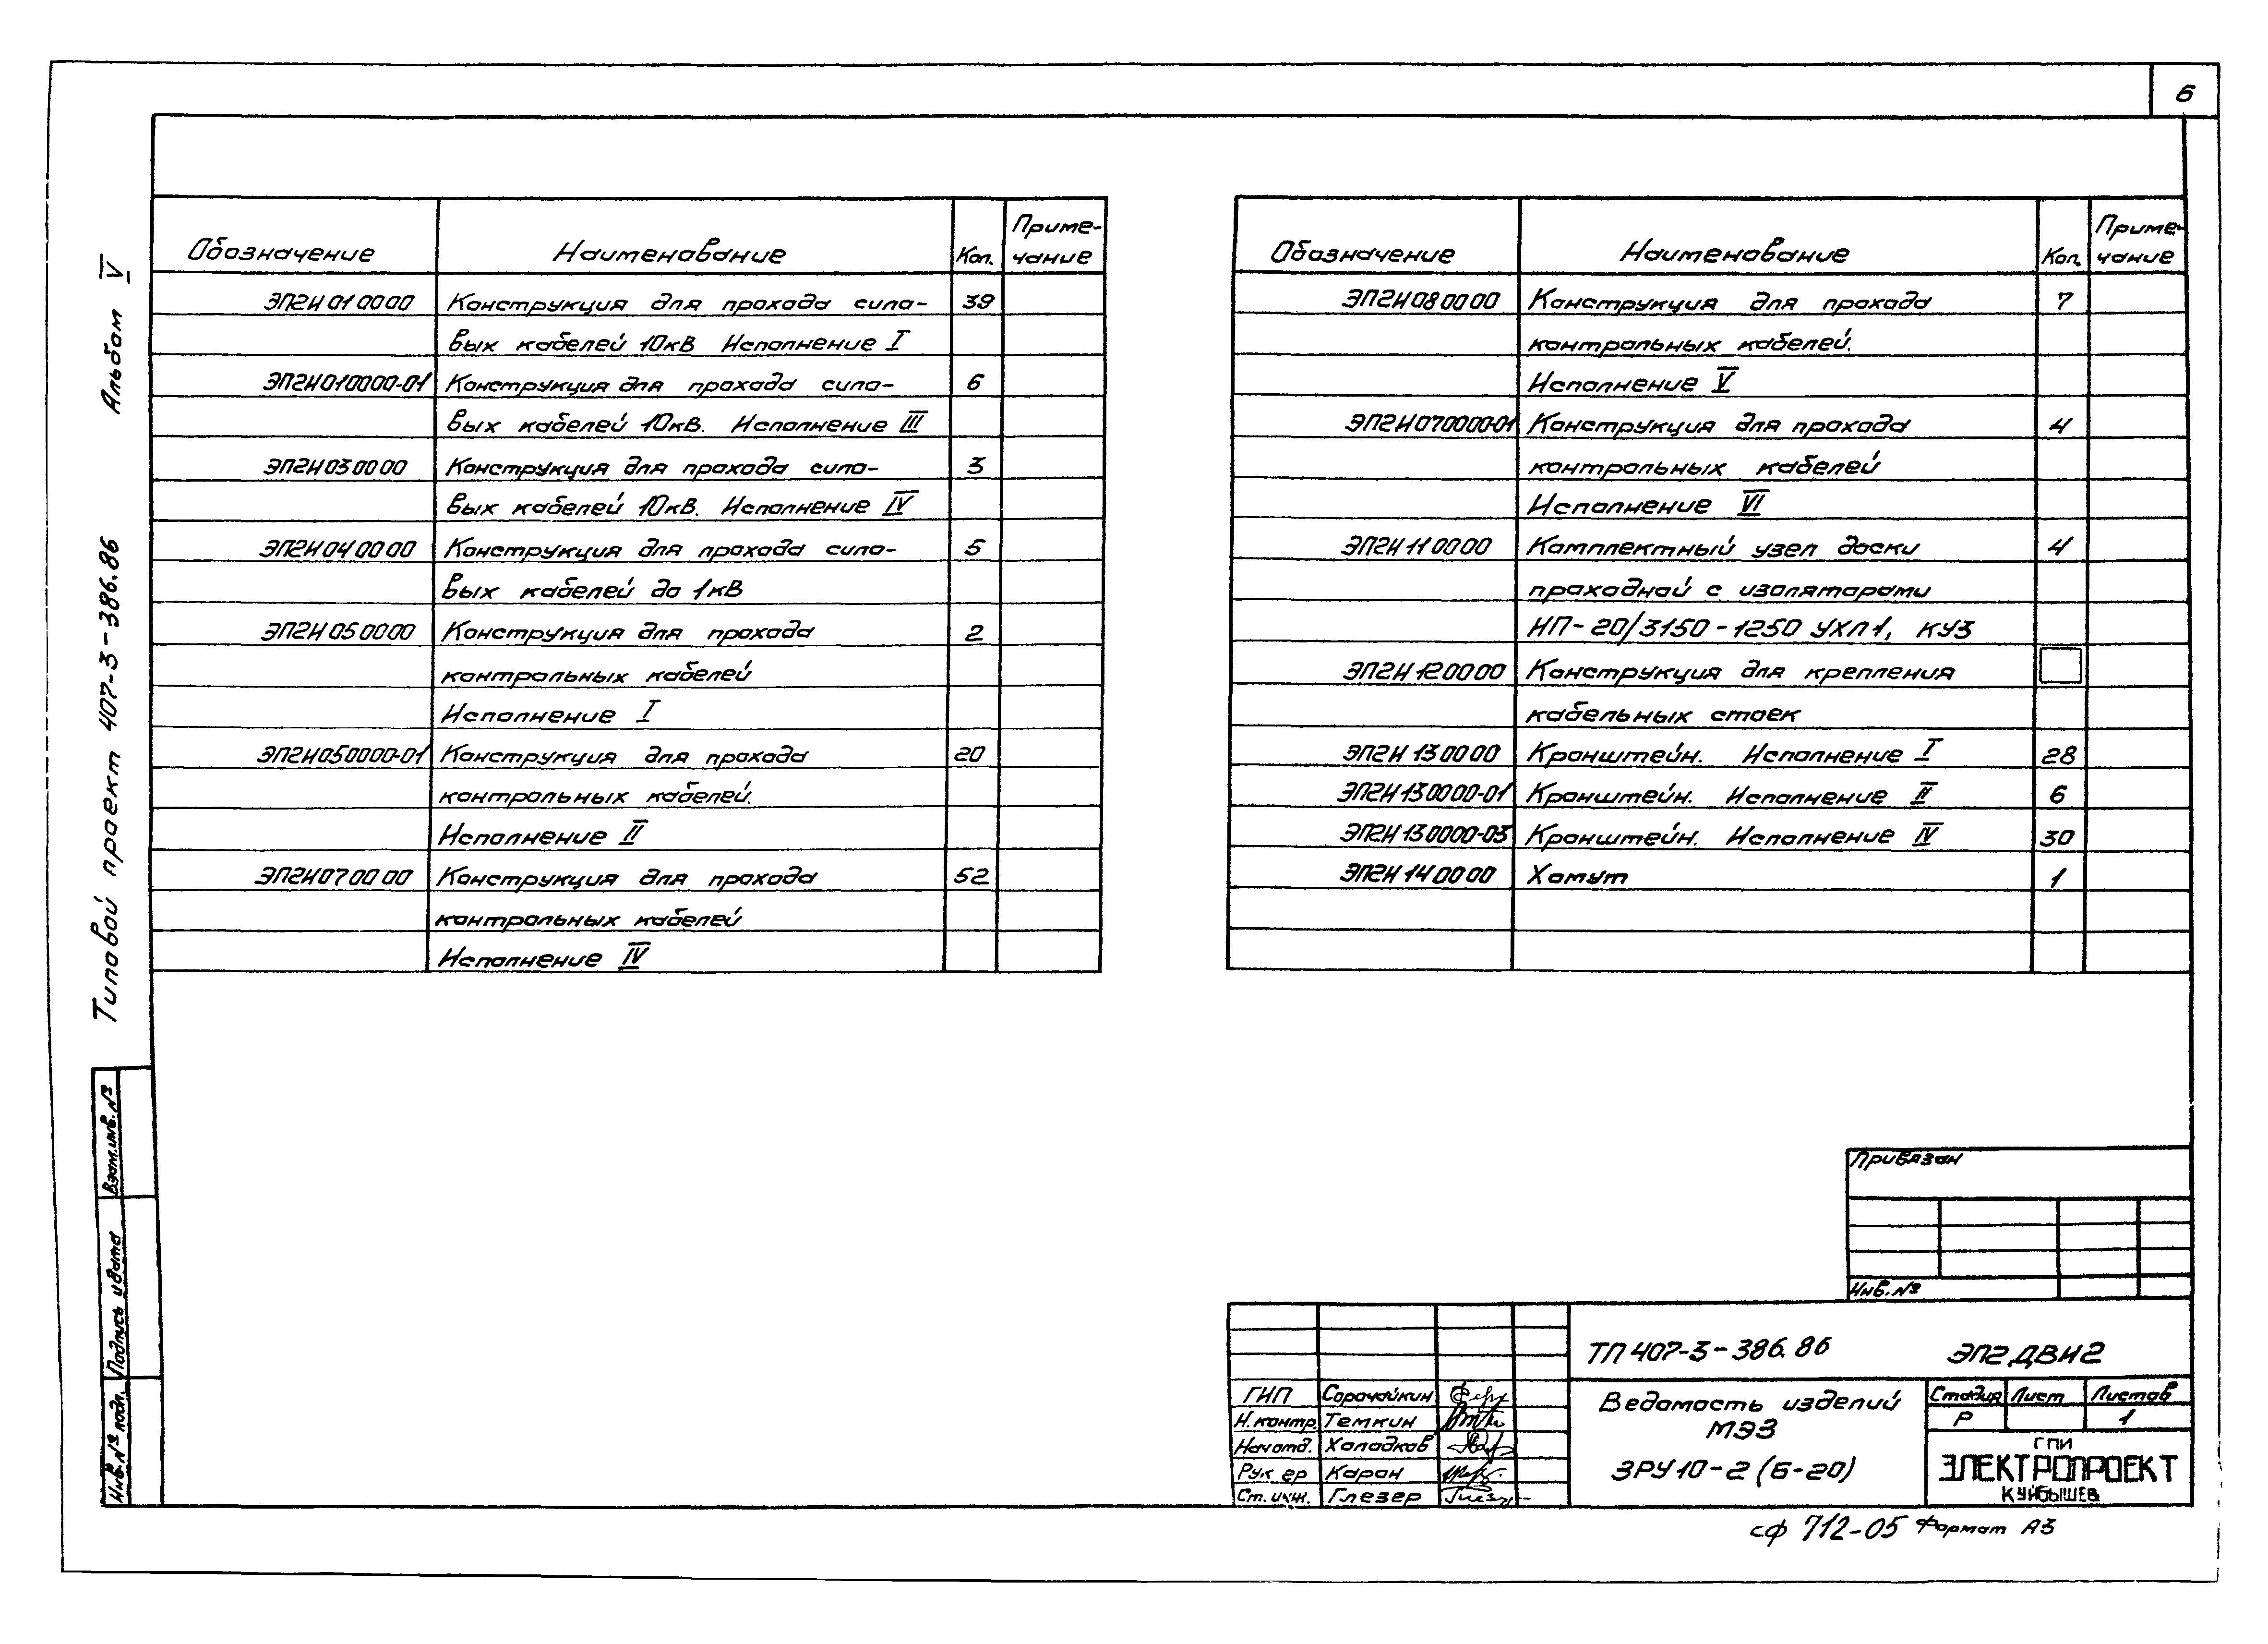 6
Альбом V
Типовой проект 407-3-386.86
Обозначение Наименование Кол. Приме-
чание
ЭП2И010000 Конструкция для прохода сило- 39
вых кабелей 10кВ Исполнение I
ЭП2И010000-01 Конструкция для прохода сило- 6
вых кабелей 10кВ. Исполнение III
ЭП2И030000 Конструкция для прохода сило- 3
вых кабелей 10кВ. Исполнение IV
ЭП2И040000 Конструкция для прохода сило- 5
вых кабелей до 1кВ
ЭП2И050000 Конструкция для прохода 2
контрольных кабелей
Исполнение I
ЭП2И050000-01 Конструкция для прохода 20
контрольных кабелей.
Исполнение II
ЭП2И070000 Конструкция для прохода 52
контрольных кабелей
Исполнение IV
Обозначение Наименование Кол. Приме-
чание
ЭП2И080000 Конструкция для прохода 7
контрольных кабелей.
Исполнение V
ЭП2И070000-01 Конструкция для прохода 4
контрольных кабелей
Исполнение VI
ЭП2И110000 Комплектный узел доски 4
проходной с изоляторами
ИП-20/3150-1250 УХЛ1, КУЗ
ЭП2И120000 Конструкция для крепления
кабельных стоек
ЭП2И130000 Кронштейн. Исполнение I 28
ЭП2И130000-01 Кронштейн. Исполнение II 6
ЭП2И130000-03 Кронштейн. Исполнение IV 30
ЭП2И140000 Хомут 1
Взам.инв.№
Подпись и дата
Инв.№ подл.
Привязан
Инв.№
ТП 407-3-386.86 ЭП2.ДВИ2
ГИП Сорочайкин
Н.контр. Темкин
Нач отд. Холодков
Рук гр Каран
Ст. инж. Глезер
Ведомость изделий
МЭЗ
ЗРУ10-2 (Б-20)
Стадия Лист Листов
Р 1
ГПИ
ЭЛЕКТРОПРОЕКТ
КУЙБЫШЕВ
сф 712-05 Формат А3